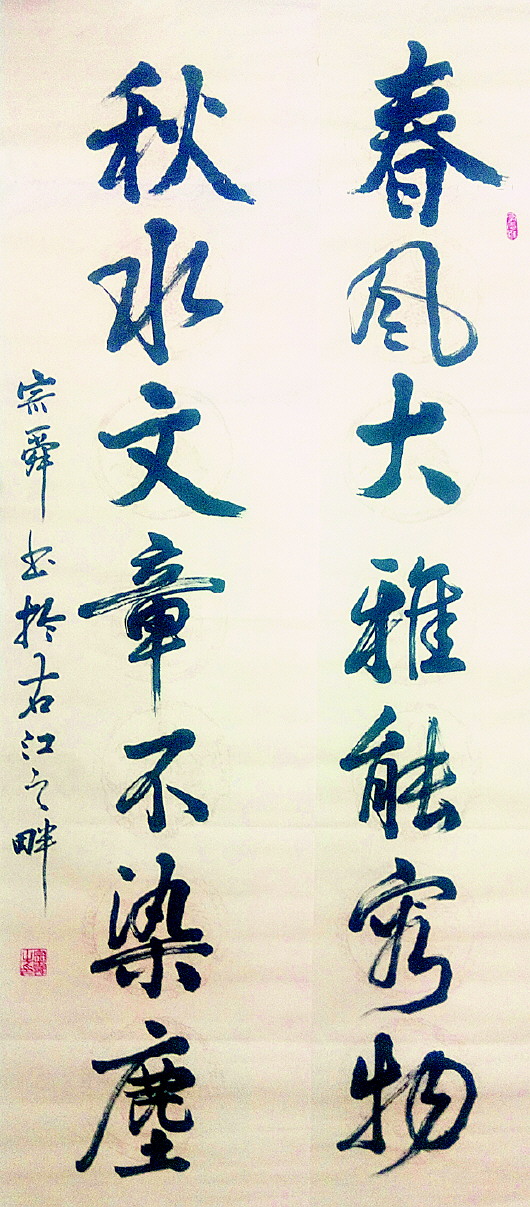 春风大雅能容物
秋水文章不染塵
宗舜书於右江之畔